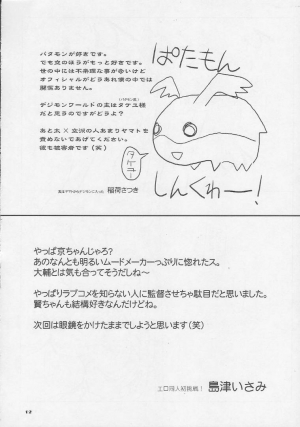 パタモンが好きです。
でも空のほうがもっと好きです。
世の中には不条理な事が多いけど
オフィシャルがどうあれ僕の中では
関係ありません。
デジモンワールドの主はタケル様
だと見きのですがどうよ？
あと太×空派の人あまりヤマトを
責めないであげてください。
彼も被害者です（笑）
稲荷さつき
ぱたもん
タケユー
しんくわー！
やっぱ京ちゃんじゃろ？
あのなんとも明るいムードメーカーっぷりに惚れたス。
大輔とは気も合ってそうだしね〜
やっぱりラブコメを知らない人に監督させちゃ駄目だと思いました。
賢ちゃんも結構好きなんだけどね。
次回は眼鏡をかけたままでしようと思います（笑）
エロ同人初挑戦！ 島津いさみ